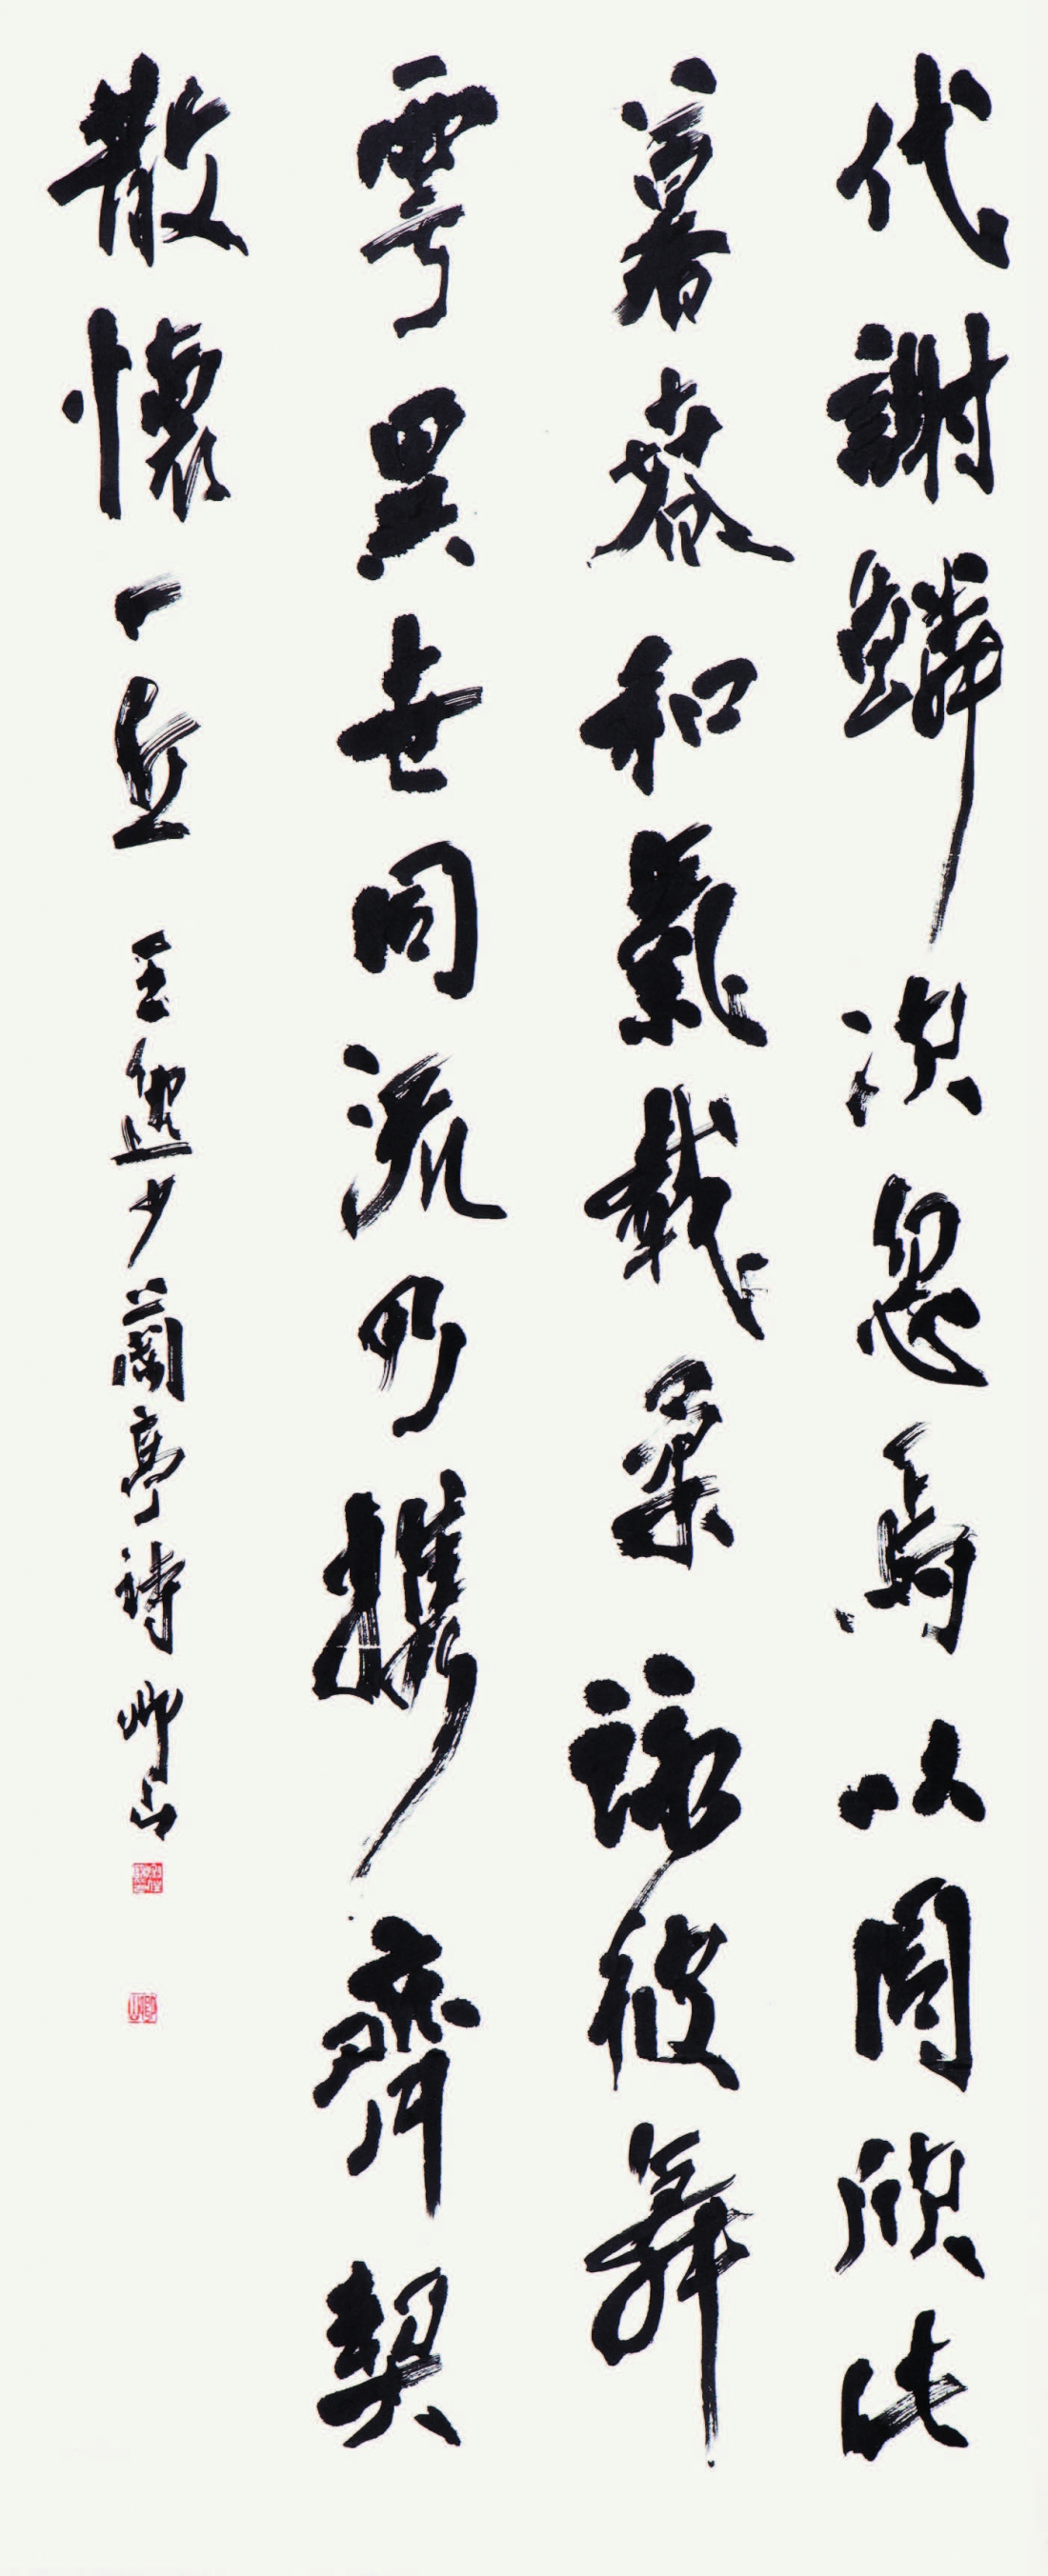 代謝鱗次忽焉以周欣此
暮春和氣載柔詠彼舞
雩異世同流乃攜齊契
散懷一丘 王逸少蘭亭詩 卿山